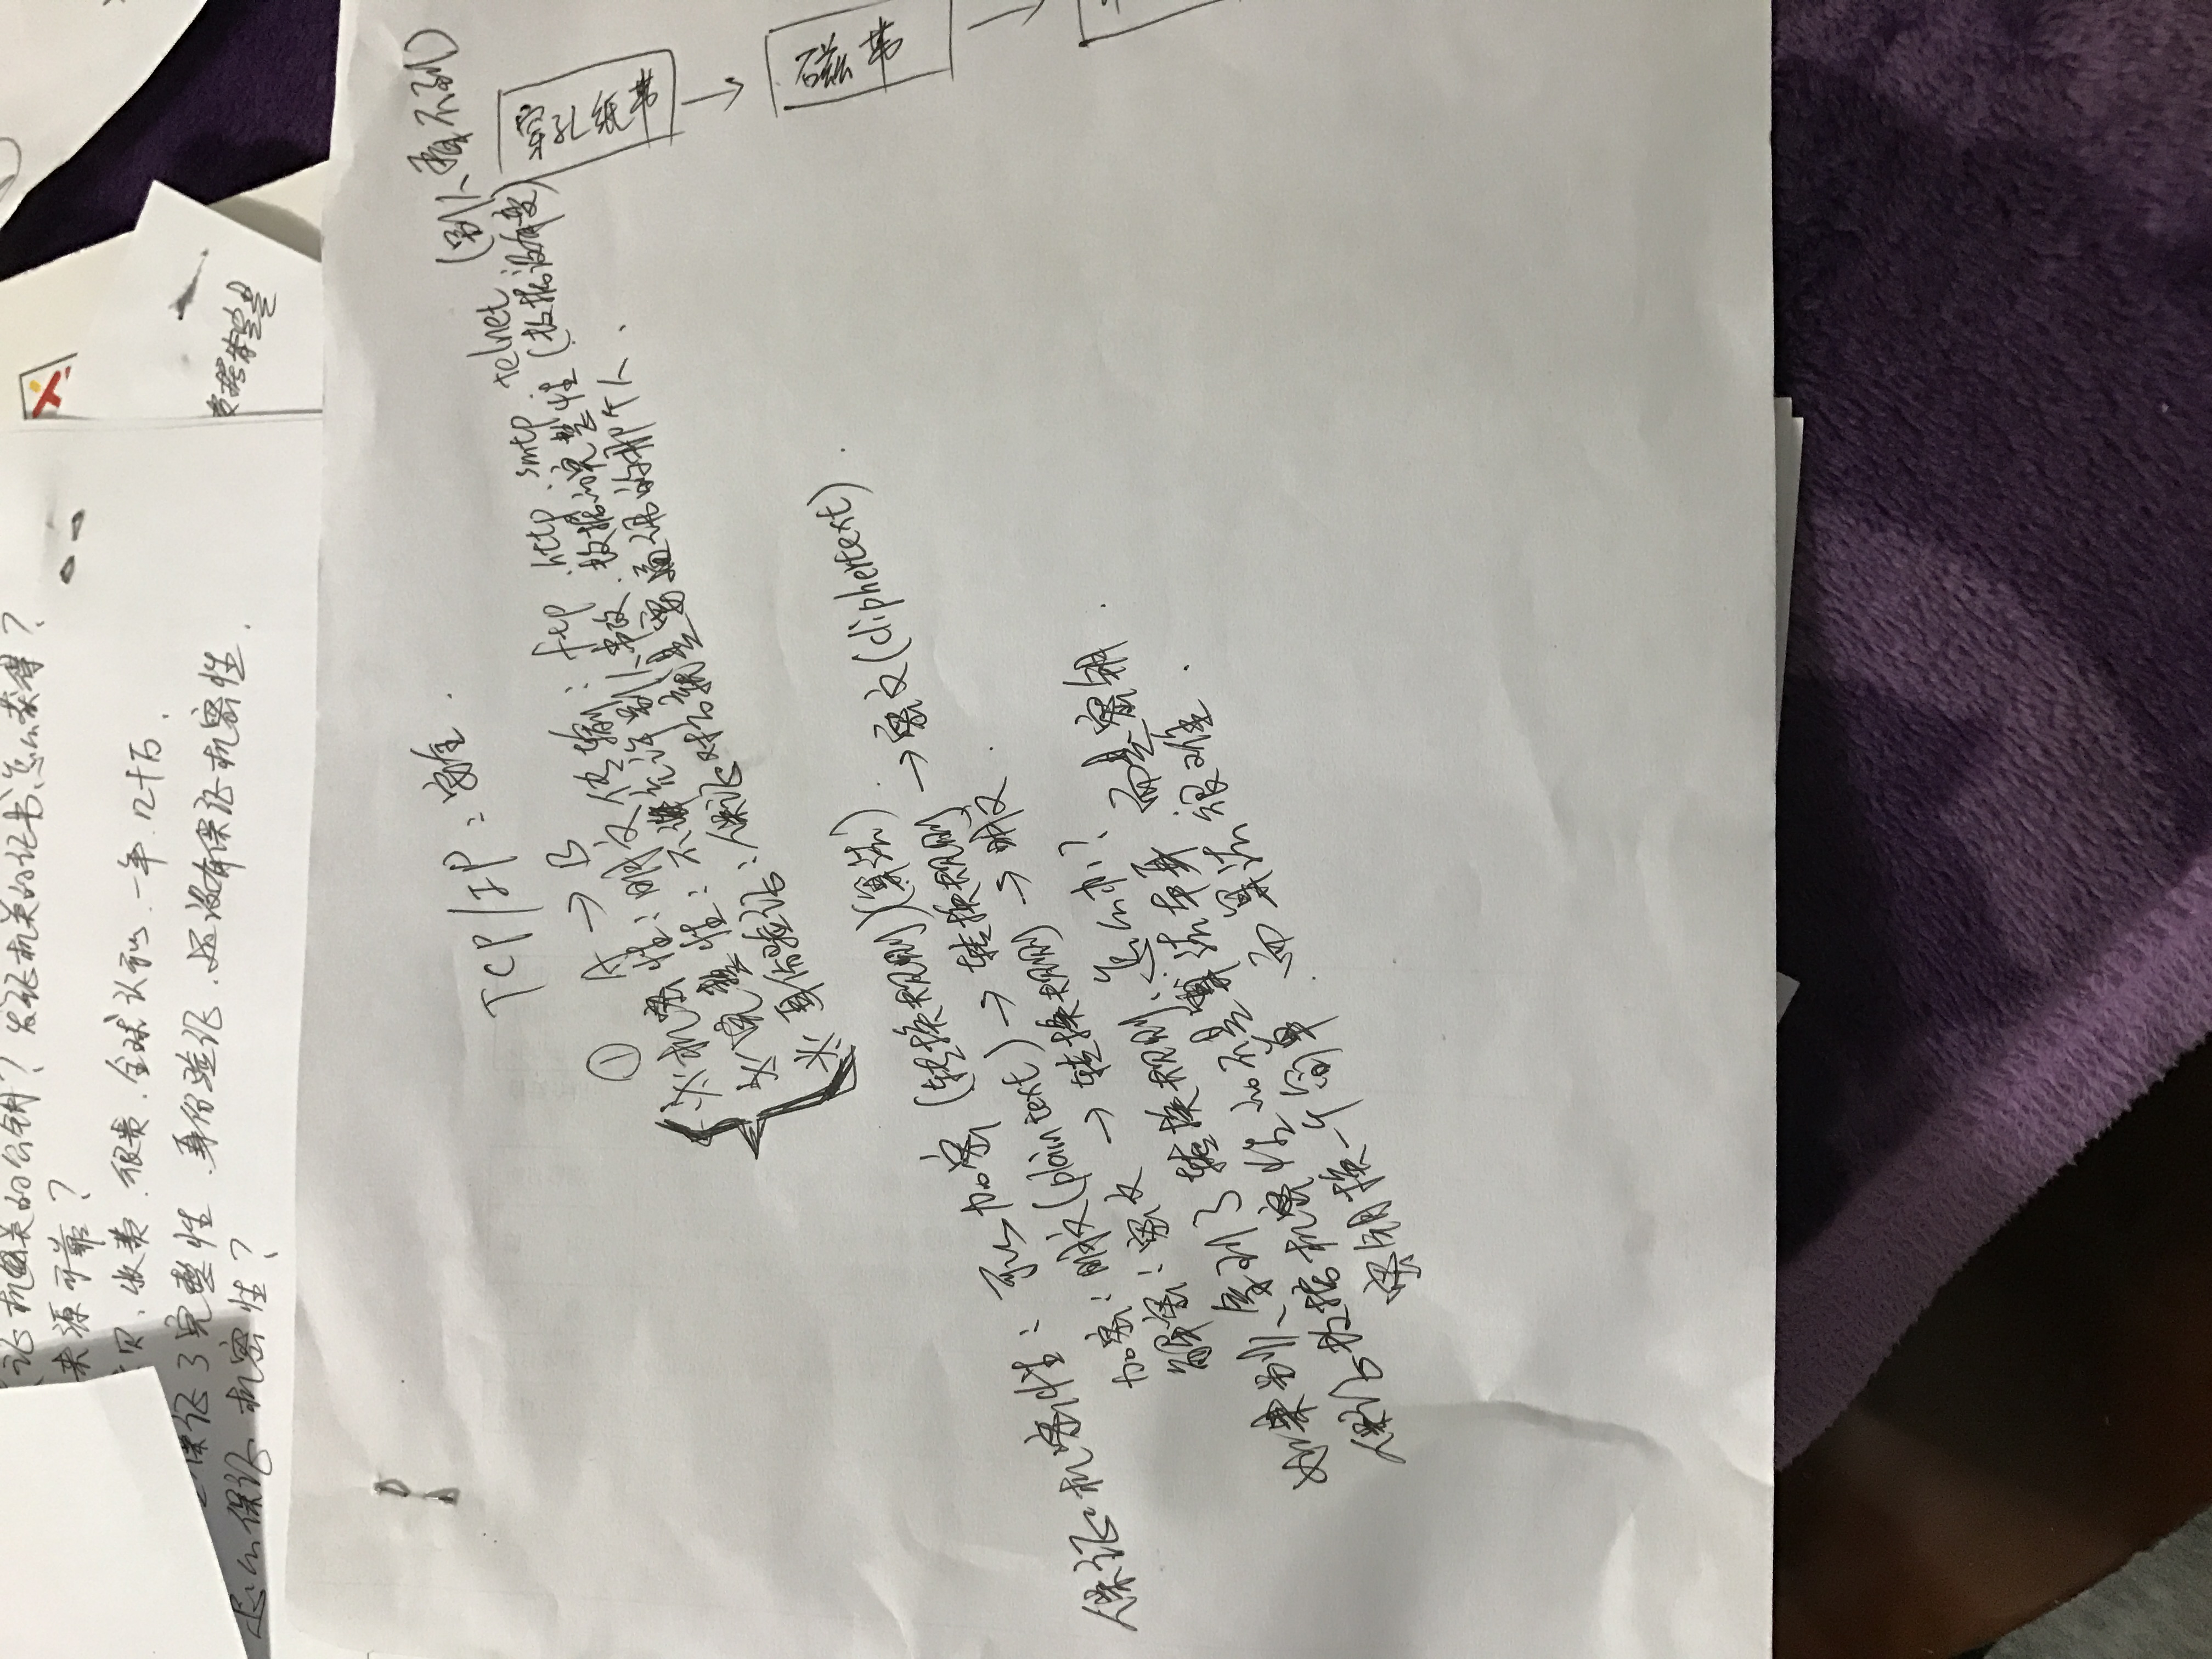 证机关的公钥？发证机关的证书怎么获得？
来源可靠？
贝、收费、很贵、全球认可、一年几十万、
保证了完整性、身份验证、还没有保证机密性、
怎么保证机密性？
TCP/IP：安全、
① A → B
※机密性：明文传输：ftp、http、smtp、telnet（别人看不到）
※完整性：不允许别人串改、数据的完整性（数据没有变）
※身份验证：保证对方就是要通讯的那个人、
保证机密性：可以加密（转换规则）（算法）、
加密：明文（plain text）→ 转换规则 → 密文（cliphertext）、
解密：密文 → 转换规则 → 明文、
如果别人拿到了转换规则、怎么办？
保证数据机密性的不是算法本身、而是密钥、
密钥换一个简单、而算法很难、
穿孔纸带
磁带